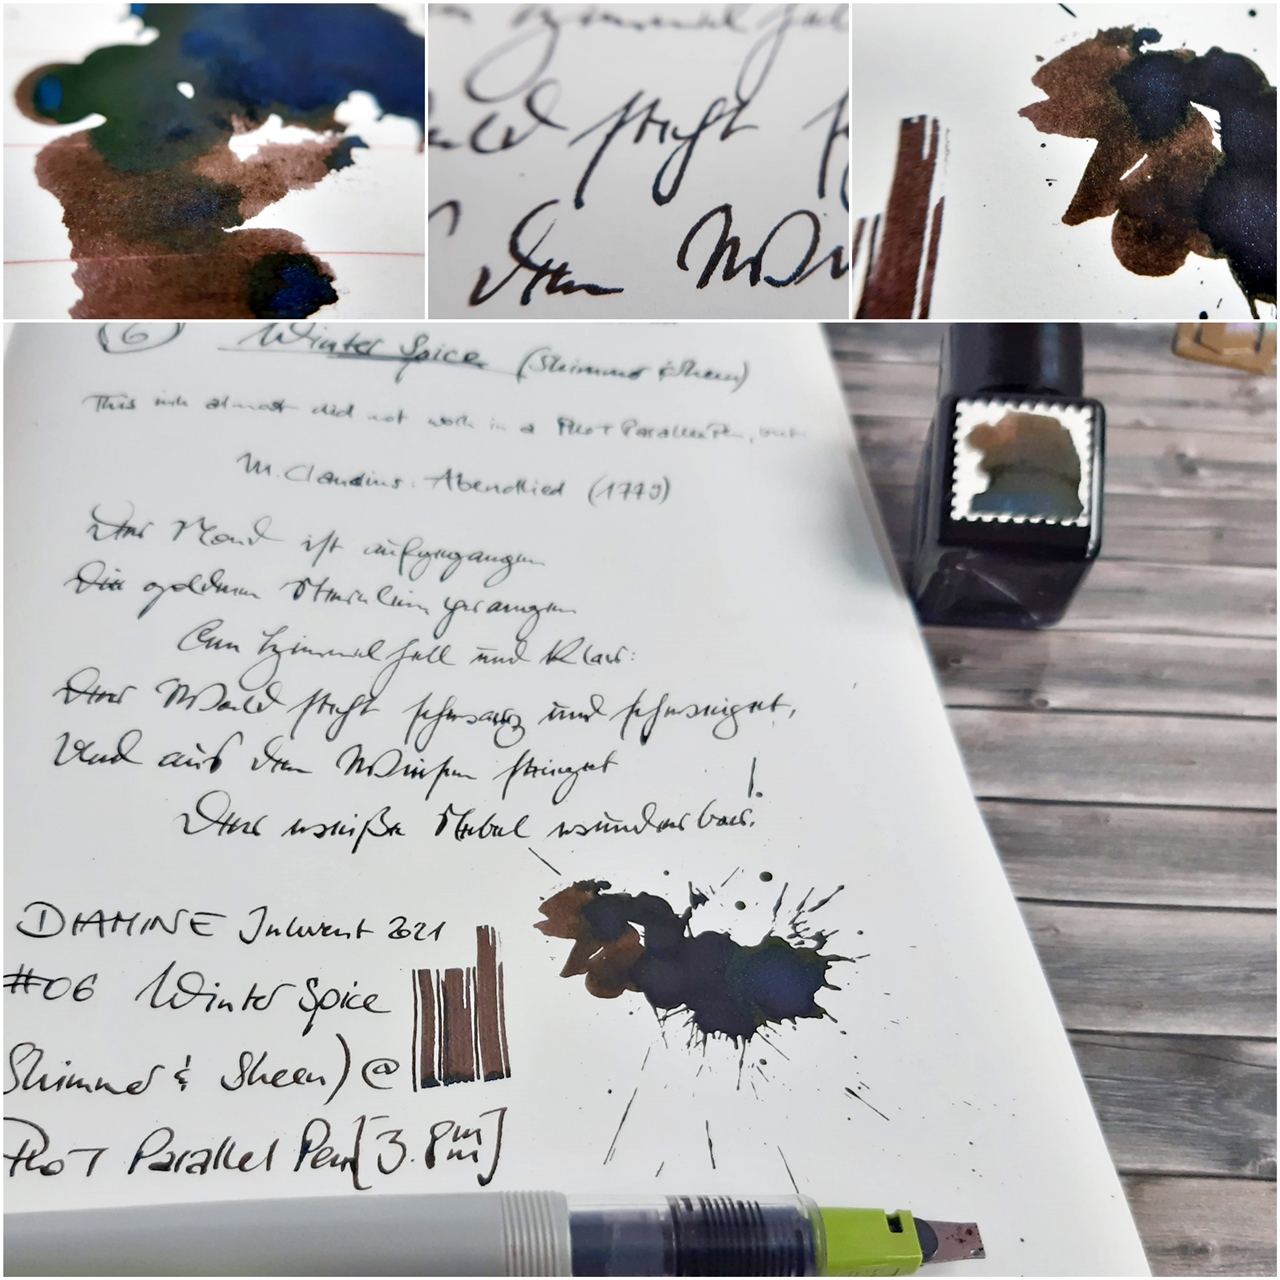 Himmel hell
ald steht
den Wie
⑥ Winter Spice (Shimmer & Sheen)
This ink almost did not work in a Pilot Parallel Pen, but
M. Claudius: Abendlied (1779)
Der Mond ist aufgegangen
Die goldnen Sternlein prangen
Am Himmel hell und klar:
Der Wald steht schwarz und schweiget,
Und aus den Wiesen steiget
Der weiße Nebel wunderbar.
DIAMINE Inkvent 2021
#06 Winter Spice
Shimmer & Sheen) @
Pilot Parallel Pen [3.8mm]